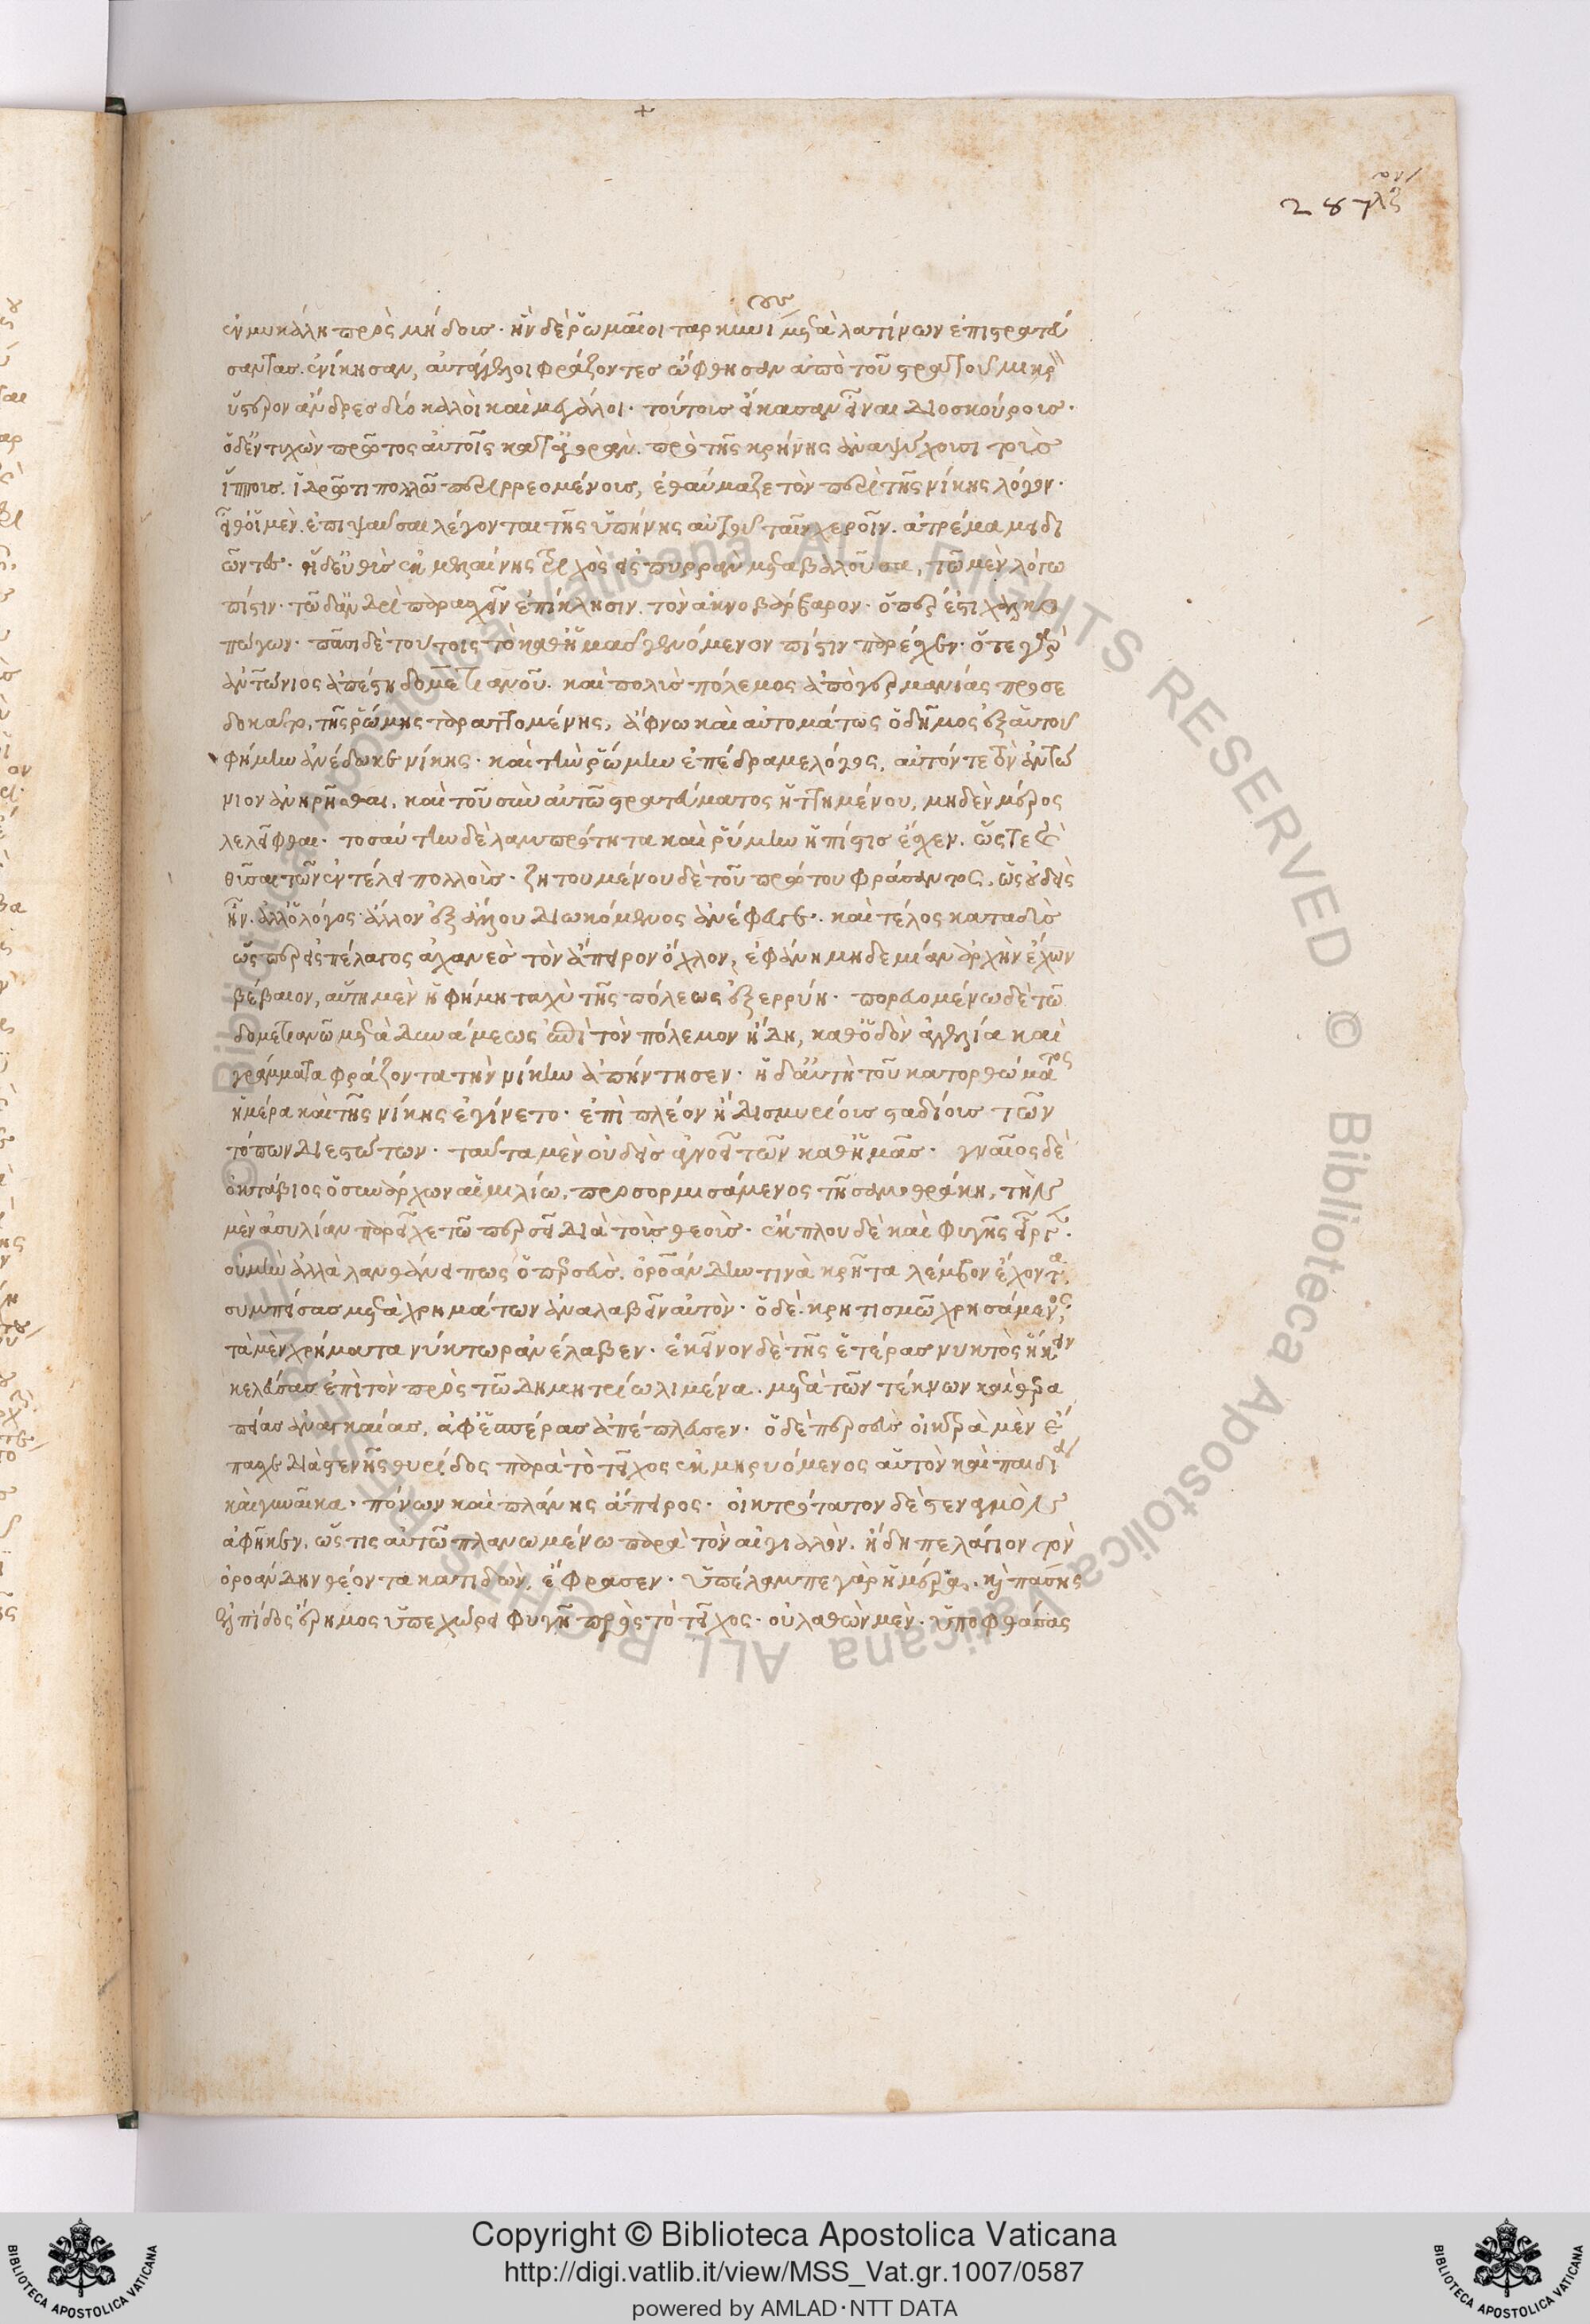 287
ἐν μυκάλη πρὸς μήδοις· ἣν δὲ ῥωμαῖοι ταρκυνίους μετὰ λατίνων ἐπιστρατεύ
σαντας ἐνίκησαν, αὐτάγγελοι φράζοντες ὤφθησαν ἀπὸ τοῦ στρατοῦ μικρὸν
ὕστερον ἄνδρες δύο καλοὶ καὶ μεγάλοι· τούτοις εἴκασαν εἶναι Διοσκούροις·
ὁ δ' ἐντυχὼν πρῶτος αὐτοῖς κατ' ἀγορὰν. πρὸ τῆς κρήνης ἀναψύχουσι τοὺς
ἵππους. ἱδρῶτι πολλῶ περιρρεομένοις, ἐθαύμαζε τὸν περὶ τῆς νίκης λόγον·
εἶθ' οἱ μὲν. ἐπιψαῦσαι λέγονται τῆς ὑπήνης αὐτοῦ ταῖν χεροῖν. ἀτρέμα μειδι
ῶντες· ἡ δ' εὐθὺς ἐκ μελαίνης τριχὸς εἰς πυρρὰν μεταβαλοῦσα, τῶ μὲν λόγω
πίστιν· τῶ δ' ἀνδρὶ παρασχεῖν ἐπίκλησιν. τὸν αἰνοβάρβαρον· ὅπερ ἐστὶ χαλκο
πώγων· πᾶσι δὲ τούτοις τὸ καθ' ἡμᾶς γενόμενον πίστιν παρέσχεν· ὅτε γὰρ
ἀντώνιος ἀπέστη δομετιανοῦ. καὶ πολὺς πόλεμος ἀπὸ γερμανίας προσε
δοκᾶτο, τῆς ῥώμης ταραττομένης, ἄφνω καὶ αὐτομάτως ὁ δῆμος ἐξ αὑτοῦ
φήμην ἀνέδωκε νίκης· καὶ τὴν ῥώμην ἐπέδραμε λόγος, αὐτόν τε τὸν ἀντώ
νιον ἀνηρῆσθαι, καὶ τοῦ σὺν αὐτῶ στρατεύματος ἡττημένου, μηδὲν μέρος
λελεῖφθαι· τοσαύτην δὲ λαμπρότητα καὶ ῥύμην ἡ πίστις ἔσχεν. ὥστε καὶ
θῦσαι τῶν ἐν τέλει πολλοὺς· ζητουμένου δὲ τοῦ πρώτου φράσαντος, ὡς οὐδεὶς
ἦν. ἀλλ' ὁ λόγος ἄλλον ἐξ ἄλλου διωκόμενος ἀνέφευγε· καὶ τέλος καταδὺς
ὥσπερ εἰς πέλαγος ἀχανὲς τὸν ἄπειρον ὄχλον, ἐφάνη μηδεμίαν ἀρχὴν ἔχων
βέβαιον, αὕτη μὲν ἡ φήμη ταχὺ τῆς πόλεως ἐξερρύη· πορευομένω δὲ τῶ
δομετιανῶ μετὰ δυνάμεως ἐπὶ τὸν πόλεμον ἤδη, καθ' ὁδὸν ἀγγελία καὶ
γράμματα φράζοντα τὴν νίκην ἀπήντησεν· ἡ δ' αὐτὴ τοῦ κατορθώματος
ἡμέρα καὶ τῆς νίκης ἐγίνετο· ἐπὶ πλέον ἢ δισμυρίοις σταδίοις τῶν
τόπων διεστώτων· ταῦτα μὲν οὐδεὶς ἀγνοεῖ τῶν καθ' ἡμᾶς· γναῖος δὲ
ὀκτάβιος ὁ συνάρχων αἰμιλίω, προσορμισάμενος τῆ σαμοθράκη, τὴν
μὲν ἀσυλίαν παρεῖχε τῶ περσεῖ διὰ τοὺς θεοὺς· ἔκπλου δὲ καὶ φυγῆς εἶργεν·
οὐ μὴν ἀλλὰ λανθάνει πως ὁ περσεὺς. ὀροάνδην τινὰ κρῆτα λέμβον ἔχοντα.
συμπείσας μετὰ χρημάτων ἀναλαβεῖν αὐτὸν· ὁ δὲ. κρητισμῶ χρησάμενος,
τὰ μὲν χρήματα νύκτωρ ἀνέλαβεν· ἐκεῖνον δὲ τῆς ἑτέρας νυκτὸς ἥκειν
κελεύσας ἐπὶ τὸν πρὸς τῶ δημητρίω λιμένα. μετὰ τῶν τέκνων καὶ θερα
πείας ἀναγκαίας, ἀφ' ἑσπέρας ἀπέπλευσεν· ὁ δὲ περσεὺς οἰκτρὰ μὲν ἔ
πασχε διὰ στενῆς θυρίδος παρὰ τὸ τεῖχος ἐκμηρυόμενος αὑτὸν καὶ παιδία
καὶ γυναῖκα· πόνων καὶ πλάνης ἄπειρος· οἰκτρότατον δὲ στεναγμὸν
ἀφῆκεν, ὥς τις αὐτῶ πλανωμένω παρὰ τὸν αἰγιαλὸν. ἤδη πελάγιον τὸν
ὀροάνδην θέοντα κατιδὼν, ἔφρασεν· ὑπέλαμπε γὰρ ἡμέρα. καὶ πάσης
ἐλπίδος ἔρημος ὑπεχώρει φυγῆ πρὸς τὸ τεῖχος· οὐ λαθὼν μὲν· ὑποφθάσας
Copyright © Biblioteca Apostolica Vaticana
http://digi.vatlib.it/view/MSS_Vat.gr.1007/0587
powered by AMLAD·NTT DATA
BIBLIOTECA APOSTOLICA VATICANA
BIBLIOTECA APOSTOLICA VATICANA
© Biblioteca Apostolica Vaticana ALL RIGHTS RESERVED © Biblioteca Apostolica Vaticana ALL RIGHTS